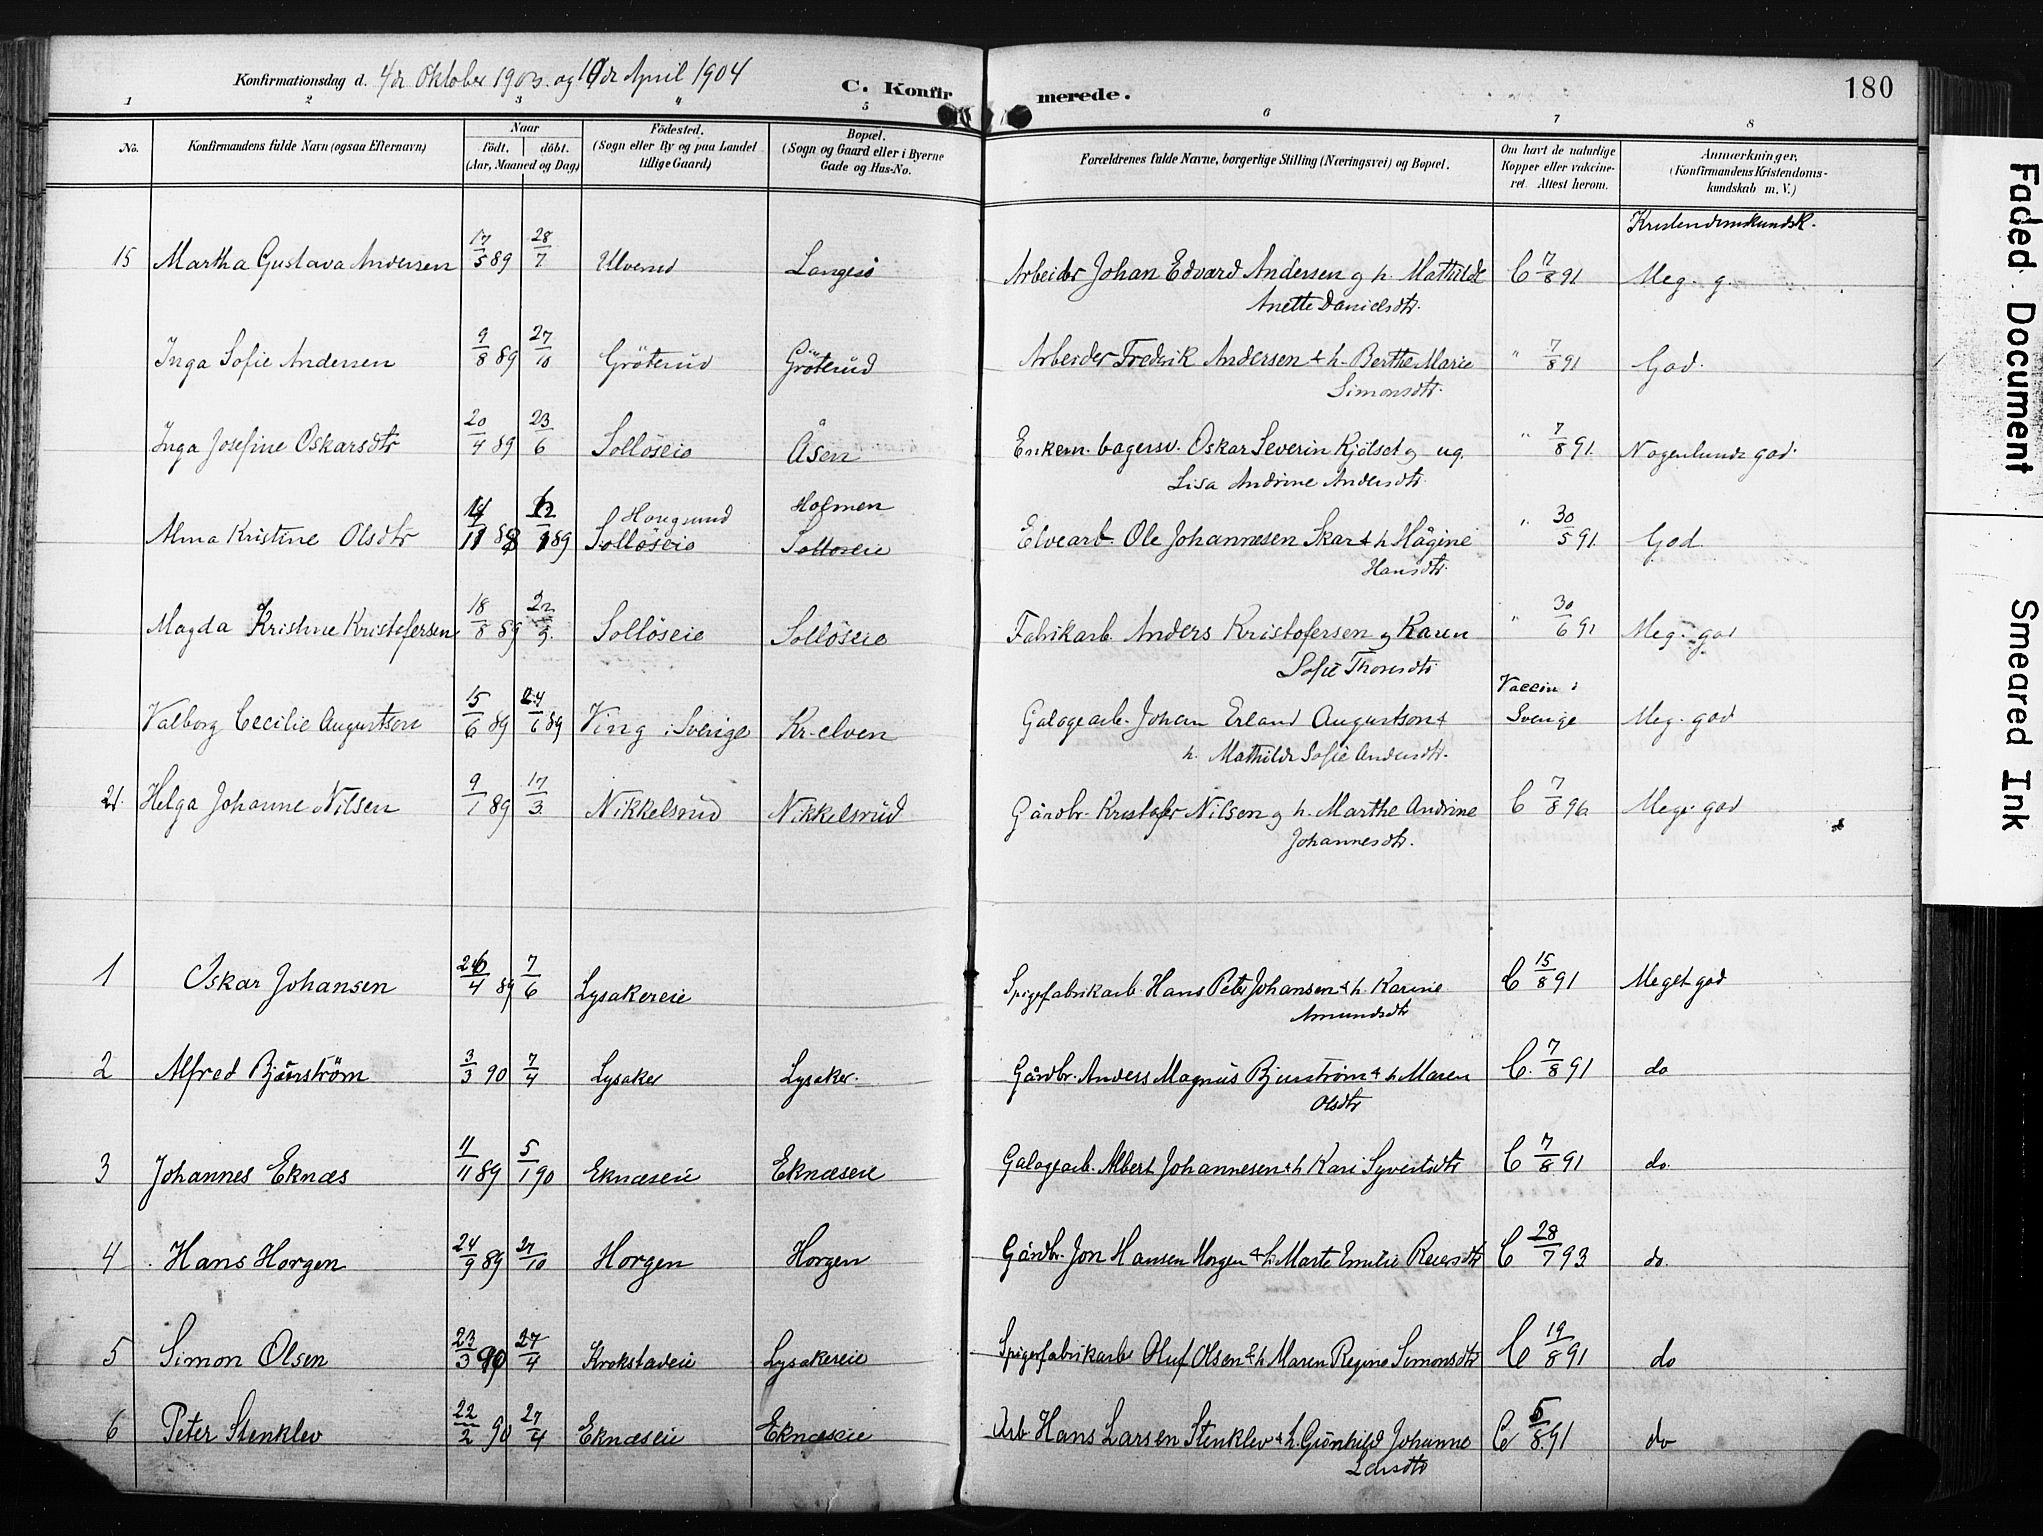 Konfirmationsdag d. 4de Oktober 1903 og 10de April 1904
C. Konfirmerede.
180
1 2 3 4 5 6 7 8
No.
Konfirmandens fulde Navn (ogsaa Efternavn)
Naar
födt. döbt.
(Aar, Maaned og Dag)
Födested.
(Sogn eller By og paa Landet
tillige Gaard)
Bopæl.
(Sogn og Gaard eller i Byerne
Gade og Hus-No.
Forældrenes fulde Navne, borgerlige Stilling (Næringsvei) og Bopæl.
Om havt de naturlige
Kopper eller vakcine-
ret. Attest herom.
Anmærkninger,
(Konfirmandens Kristendoms-
kundskab m. V.)
Kristendomskundsk.
15 Martha Gustava Andersen 17/5 89 28/7 Ulverud Langesö Arbeider Johan Edvard Andersen og h. Mathilde C 7/8 91 Meg. g.
Anette Danielsdtr.
Inga Sofie Andersen 9/8 89 27/10 Gröterud Gröterud Arbeider Fredrik Andersen & h. Berthe Marie " 7/8 91 God.
Simonsdtr.
Inga Josefine Oskarsdtr 20/4 89 23/6 Sollöseie Åsen Enkem. bagersv. Oskar Severin Kjölset og ug. " 7/8 91. Nogenlunde god.
Lisa Andrine Andersdtr.
Hougsund Holmen
Alma Kristine Olsdtr 11 88 1 89 Sollöseie Solloseie Elvearb. Ole Johannesen Skar & h. Hågine " 30/5 91. God
Hansdtr.
Magda Kristine Kristofersen 18/8 89 22/9. Sollöseie Sollöseie Fabrikarb. Anders Kristofersen og Karen " 30/6 91 Meg. god
Sofie Thoresdtr.
Vaccin i
Valborg Cecilie Augustson 15/6 89 24/6 89 Ving i Sverige Kr-elven Galogearb. Johan Erland Augustson & Sverige Meg. god
h. Mathilde Sofie Andersdtr.
21. Helga Johanne Nilsen 9/1 89 17/3. Nikkelsrud Nikkelsrud Gårdbr. Kristofer Nilsen og h. Marthe Andrine C 7/8 96. Meg. god
Johannesdtr.
1 Oskar Johansen 26/4 89 7/6 Lysakereie Spigerfabrikarb. Hans Peter Johansen & h. Karine C 15/8 91 Meget god
Amundsdtr
2 Alfred Bjurström 3/3 90 7/4 Lysaker Lysaker. Gårdbr. Anders Magnus Bjurström & h. Maren C. 7/8 91 do
Olsdtr
3 Johannes Eknæs 11/11 89 5/1 90 Eknæseie Eknæseie Galogearb. Albert Johannesen & h. Kari Syvertsdtr C 7/8 91 do.
4 Hans Horgen 24/9 89 27/10 Horgen Horgen Gårdbr. Jon Hansen Horgen & h. Marte Emilie Reiersdtr C 28/7 93. do.
5 Simon Olsen 23/3 90 27/4 Krokstadeie Lysakereie Spigerfabrikarb. Oluf Olsen & h. Maren Regine Simonsdtr C 19/8 91 do
6 Peter Stenklev 22/2 90 27/4 Eknæseie Eknæseie Arb Hans Larsen Stenklev & h. Gunhild Johanne C 5/8 91 do
Larsdtr
Faded Document
Smeared Ink